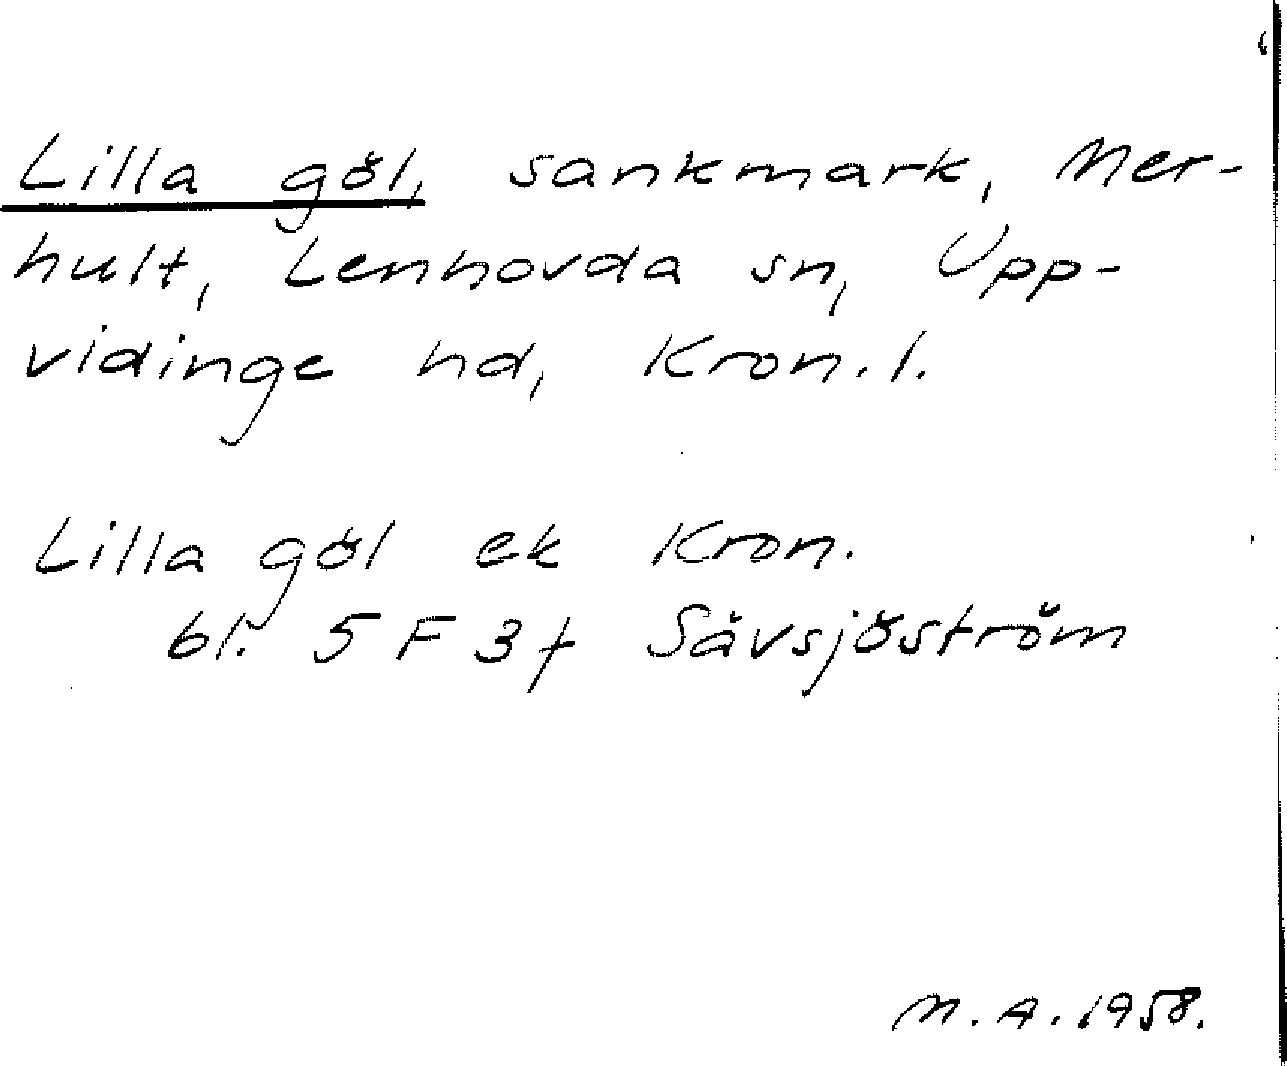 Lilla göl, sankmark, Mer-
hult, Lenhovda sn, Upp-
vidinge hd, Kron. l.
Lilla göl ek Kron.
bl. 5 F 3 f Sävsjöström
M. A. 1958.